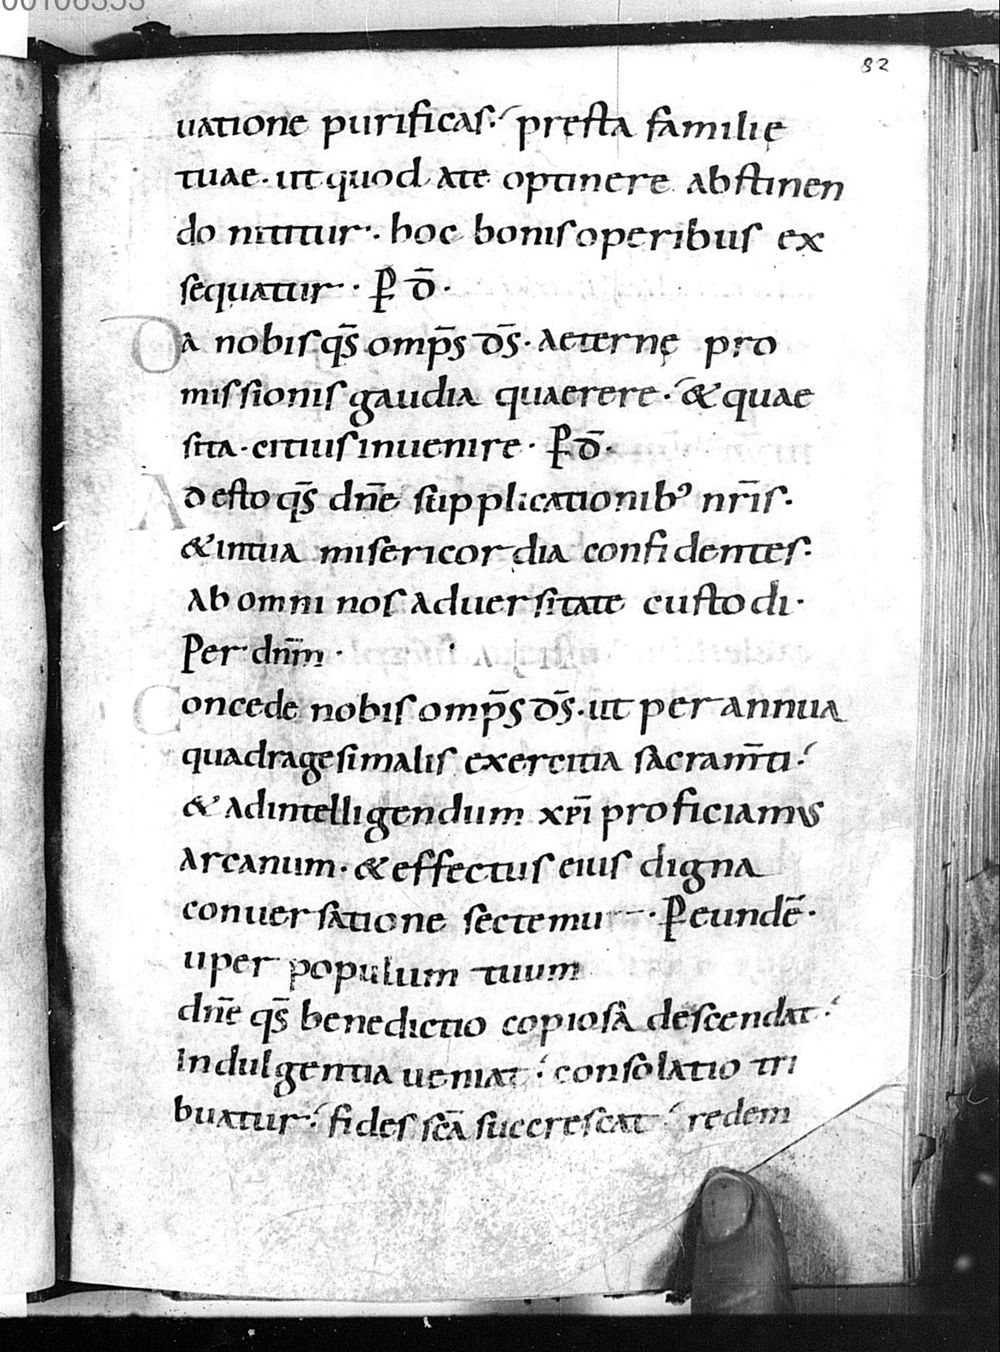 00106353
82
uatione purificas· presta familię
tuae· ut quod ate optinere abstinen
do nititur·. hoc bonis operibus ex
sequatur· P̄ d̄·
Da nobis qs̄ omp̄s ds̄· aeternę pro
missionis gaudia quaerere· & quae
sita· citius inuenire· P̄ d̄·
Adesto qs̄ dn̄e supplicationib; nr̄is·
& intua misericordia confidentes·
Ab omni nos aduersitate custodi·
Per dn̄m·
Concede nobis omp̄s ds̄· ut per annua
quadragesimalis exercitia sacram̄ti·
& adintelligendum xp̄i proficiamus
arcanum· & effectus eius digna
conuersatione sectemur· P̄ eundē·
uper populum tuum
dn̄e qs̄ benedictio copiosa descendat·
Indulgentia ueniat· consolatio tri
buatur· fides sc̄a succrescat· redem